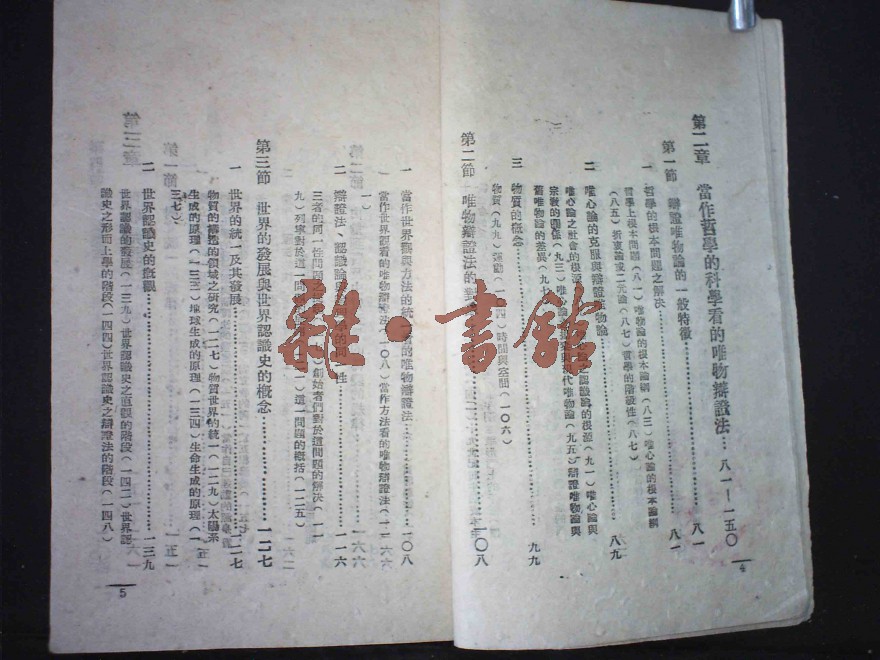 第二章 當作哲學的科學看的唯物辯證法…八一—一五〇
第一節 辯證唯物論的一般特徵……八一
一 哲學的根本問題之解決……八一
哲學上根本問題(八一)唯物論的根本論綱(八三)唯心論的根本論綱
(八五)折衷論或二元論(八七)哲學的階級性(八七)
二 唯心論的克服與辯證唯物論……八九
唯心論之社會的根源 之認識論的根源(九一)唯心論與
宗教的關係(九三)唯心論 代唯物論(九五)辯證唯物論與
舊唯物論的差異(
三 物質的概念……九九
物質(九九)運動(一 四)時間與空間(一〇六)
第二節 唯物辯證法的 一〇八
一 當作世界觀與方法的統 看的唯物辯證法……一〇八
當作世界觀看的唯物辯證法(一〇八)當作方法看的唯物辯證法(一一
一)
二 辯證法、認識論 的同一性……一一六
三者的同一性問題之 創始者們對於這問題的解決(一一
九)列寧對於這一問 一)這一問題的概括(一二五)
第三節 世界的發展與世界認識史的概念……一二七
一 世界的統一及其發展……一二七
物質的構造的領域之研究(一二七)物質世界的統一(一二九)太陽系
生成的原理(一三三)地球生成的原理(一三四)生命生成的原理(一
三七)
二 世界認識史的概觀……一三九
世界認識的發展(一三九)世界認識史之直觀的階段(一四二)世界認
識史之形而上學的階段(一四四)世界認識史之辯證法的階段(一四八)
4
5
雜·書館